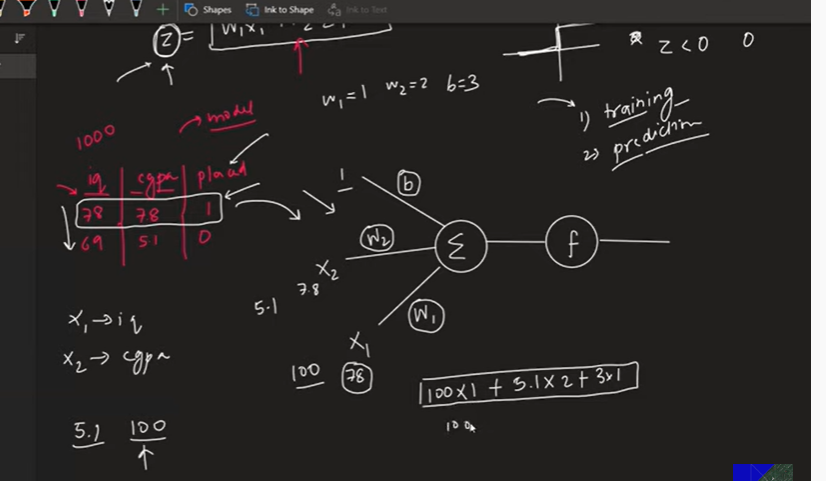 Shapes Ink to Shape Ink to Text
z = w₁x₁
z<0 0
w₁=1 w₂=2 b=3
1) training
2) prediction
1000 → model
iq cgpa placed
78 78 1
69 5.1 0
1 b
w₂
Σ f
x₂
5.1 7.8
w₁
x₁→iq
x₂→cgpa
x₁
100 78
100×1 + 5.1×2 + 3×1
100
5.1 100